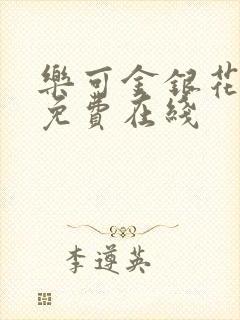 樂可金銀花
免費在綫
李遵英